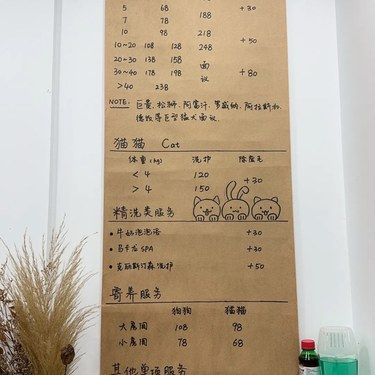 5 68 168 +30
7 78 188
10 98 218 +50
10~20 108 128 248
20~30 138 158 面议
30~40 178 198 +80
>40 238
NOTE: 巨贵、松狮、阿富汗、罗威纳、阿拉斯加、
德牧等巨型猛犬面议
猫猫 Cat
体重(kg) 洗护 除底毛
<4 120 +30
>4 150
精洗类服务
• 牛奶泡泡浴 +30
• 马卡龙SPA +30
• 克丽斯汀森洗护 +50
寄养服务
狗狗 猫猫
大房间 108 98
小房间 78 68
其他单项服务